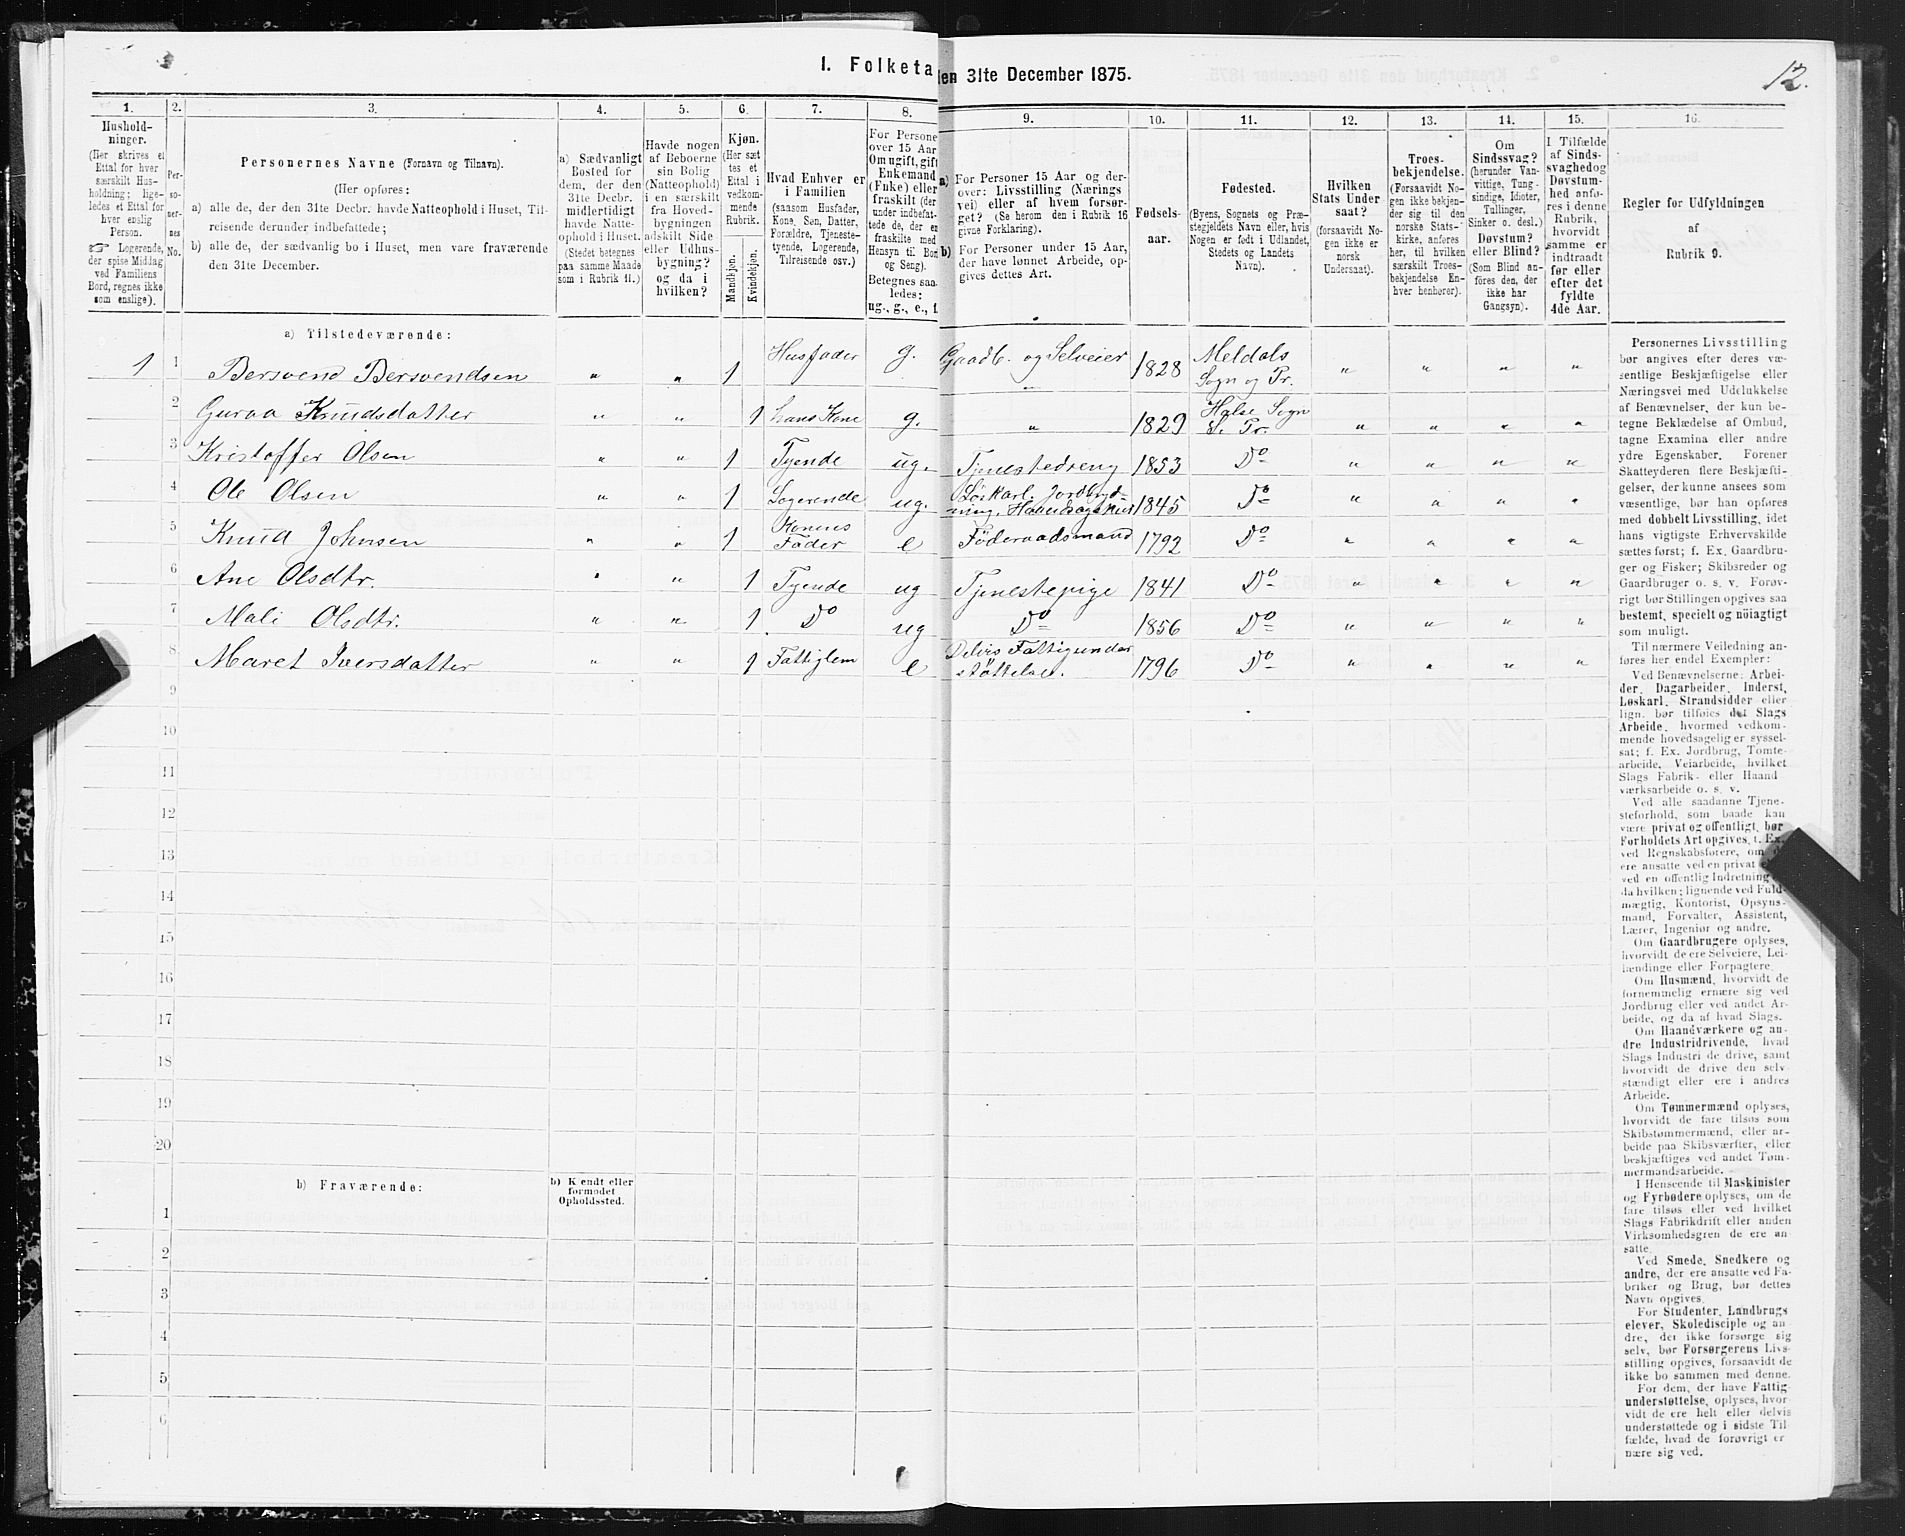 1. Folketa
den 31te December 1875.
12.
1.
2.
3.
4.
5.
6.
7.
8.
9.
10.
11.
12.
13.
14.
15.
16.
Hushold-
ninger.
(Her skrives et
Ettal for hver
særskilt Hus-
holdning; lige-
ledes et Ettal for
hver enslig
Person.
☞ Logerende,
der spise Middag
ved Familiens
Bord, regnes ikke
som enslige).
Per-
so-
ner-
nes
No.
Personernes Navne (Fornavn og Tilnavn).
(Her opføres:
a) alle de, der den 31te Decbr. havde Natteophold i Huset, Til-
reisende derunder indbefattede;
b) alle de, der sædvanlig bo i Huset, men vare fraværende
den 31te December.
a) Sædvanligt
Bosted for
dem, der den
31te Decbr.
midlertidigt
havde Natte-
ophold i Huset.
(Stedet betegnes
paa samme Maade
som i Rubrik 11.)
Havde nogen
af Beboerne
sin Bolig
(Natteophold)
i en særskilt
fra Hoved-
bygningen
adskilt Side
eller Udhus-
bygning?
og da i
hvilken?
Kjøn.
(Her sæt-
tes et
Ettal i
vedkom-
mende
Rubrik.
Mandkjøn.
Kvindekjøn.
Hvad Enhver er
i Familien
(saasom Husfader,
Kone, Søn, Datter,
Forældre, Tjeneste-
tyende, Logerende,
Tilreisende osv.)
For Persone
over 15 Aar
Om ugift, gift
Enkemand
(Enke) eller
fraskilt (der
under indbefat-
tede de, der er
fraskilte med
Hensyn til Bor
og Seng).
Betegnes saa-
ledes:
ug., g., e., f.
a) For Personer 15 Aar og der-
over: Livsstilling (Nærings
vei) eller af hvem forsør-
get? (Se herom den i Rubrik 16
givne Forklaring).
b) For Personer under 15 Aar,
der have lønnet Arbeide, op-
gives dettes Art.
Fødsels-
aar.
Fødested.
(Byens, Sognets og Præ-
stegjeldets Navn eller, hvis
Nogen er født i Udlandet,
Stedets og Landets
Navn).
Hvilken
Stats Under
saat?
(forsaavidt No-
gen ikke er
norsk
Undersaat).
Troes-
bekjendelse.
(Forsaavidt No-
gen ikke bekjen-
der sig til den
norske Stats-
kirke, anføres
her, til hvilken
særskilt Troes-
bekjendelse En-
hver henhører).
Om
Sindssvag?
(herunder Van-
vittige, Tung-
sindige, Idioter,
Tullinger,
Sinker o. desl.)
Døvstum?
eller Blind?
(Som Blind an-
føres den, der
ikke har
Gangsyn).
I Tilfælde
af Sinds-
svaghedog
Døvstum-
hed anfø-
res i denne
Rubrik,
hvorvidt
samme er
indtraadt
før eller
efter det
fyldte
4de Aar.
Regler før Udfyldningen
af
Rubrik 9.
a) Tilstedeværende:
1 1 Bersvend Bersvendsen " " 1 Husfader g. Gaardb. og Selveier 1828 Meldals Sogn og Pr. " " " "
2 Guraa Knudsdatter " " 1 hans Kone g. " 1829 Halse Sogn " " " "
3 Kristoffer Olsen " " 1 Tyende ug. Tjenestedreng 1853 Do " " " "
4 Ole Olsen " " 1 Logerende ug. 1845 Do " " " "
5 Knud Johnsen " " 1 Konens Fader e Föderaadsmand 1792 Do " " " "
6 Ane Olsdtr. " " 1 Tyende ug Tjenestepige 1841 Do " " " "
7 Mali Olsdtr. " " 1 Do ug Do 1856 Do " " " "
8 Maret Iversdatter " " 1 Fattiglem e Delvis Fattigunder støttelse. 1796 Do " " " "
9
10
11
12
13
14
15
16
17
18
19
20
b) Fraværende:
b) Kendt eller
formodet
Opholdssted.
1
2
3
4
5
6
Personernes Livsstilling
bør angives efter deres væ-
sentlige Beskjæftigelse eller
Næringsvei med Udelukkelse
af Benævnelser, der kun be-
tegne Beklædelse af Ombud,
tagne Examina eller andre
ydre Egenskaber. Forener
Skatteyderen flere Beskjæfti-
gelser, der kunne ansees som
væsentlige, bør han opføres
med dobbelt Livsstilling, idet
hans vigtigste Erhvervskilde
sættes først; f. Ex. Gaardbru-
ger og Fisker; Skibsreder og
Gaardbruger o. s. v. Forøv-
rigt bør Stillingen opgives saa
bestemt, specielt og nöiagtigt
som muligt.
Til nærmere Veiledning an-
føres her endel Exempler:
Ved Benævnelserne: Arbei-
der, Dagarbeider, Inderst,
Løskarl, Strandsidder eller
lign. bør tilføies det Slags
Arbeide, hvormed vedkom-
mende hovedsagelig er syssel-
sat; f. Ex. Jordbrug, Tomte-
arbeide, Veiarbeide, hvilket
Slags Fabrik- eller Haand
værksarbeide o. s. v.
Ved alle saadanne Tjene-
steforhold, som baade kan
være privat og offentligt, bør
Forholdets Art opgives, f. Ex.
ved Regnskabsførere, om
ere ansatte ved en privat
ved en offentlig Indretning
da hvilken; lignende ved Fuld-
mægtig, Kontorist, Opsyns-
mand, Forvalter, Assistent,
Lærer, Ingeniør og andre.
Om Gaardbrugere oplyses,
hvorvidt de ere Selveiere, Lei-
lændinge eller Forpagtere.
Om Husmænd, hvorvidt de
fornemmelig ernære sig ved
Jordbrug eller ved andet Ar-
beide, og da af hvad Slags.
Om Haandværkere og an-
dre Industridrivende, hvad
Slags Industri de drive, samt
hvorvidt de drive den selv-
stændigt eller ere i andres
Arbeide.
Om Tømmermænd oplyses,
hvorvidt de fare tilsøs som
Skibstømmermænd, eller ar-
beide paa Skibsværfter, eller
beskjæftiges ved andet Tøm-
mermandsarbeide.
I Henseende til Maskinister
og Fyrbødere oplyses, om de
fare tilsøs eller ved hvilket
Slags Fabrikdrift eller anden
Virksomhedsgren de ere an
satte.
Ved Smede, Snedkere og
andre, der ere ansatte ved Fa-
briker og Brug, bør dettes
Navn opgives.
For Studenter, Landbrugs
elever, Skoledisciple og an-
dre, der ikke forsørge sig
selv, bør Forsørgerens Livs-
stilling opgives, forsaavidt de
ikke bo sammen med denne.
For dem, der have Fattig
understøttelse, oplyses, hvor-
vidt de ere helt eller delvis
understøttede og i sidste Til-
fælde, hvad de forøvrigt er
nære sig ved.